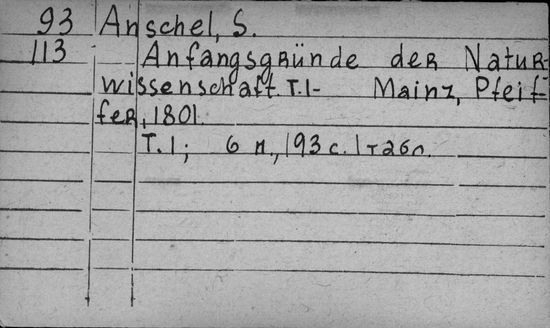 93 Anschel, S.
113 Anfangsgründe der Natur-
wissenschaft. T.1- Mainz, Pfeif-
fer, 1801.
T.1; 6 н., 193 с. 1 табл.